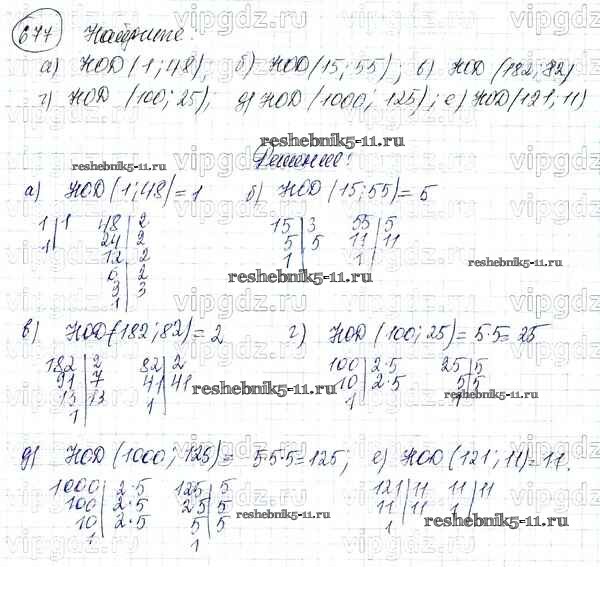 677 Найдите:
а) НОД (1; 48); б) НОД (15; 55); в) НОД (182; 82)
г) НОД (100; 25); д) НОД (1000; 125); е) НОД (121; 11)
reshebnik5-11.ru
Решение:
reshebnik5-11.ru
а) НОД (1; 48) = 1 б) НОД (15; 55) = 5
1 | 1 48 | 2 15 | 3 55 | 5
1 | 24 | 2 5 | 5 11 | 11
12 | 2 1 | 1 |
6 | 2
3 | 3
1 |
reshebnik5-11.ru
в) НОД (182; 82) = 2 г) НОД (100; 25) = 5·5 = 25
182 | 2 82 | 2 100 | 2·5 25 | 5
91 | 7 41 | 41 10 | 2·5 5 | 5
13 | 13 1 | 1 | 1 |
1 |
reshebnik5-11.ru
reshebnik5-11.ru
д) НОД (1000; 125) = 5·5·5 = 125; е) НОД (121; 11) = 11.
1000 | 2·5 125 | 5 121 | 11 11 | 11
100 | 2·5 25 | 5 11 | 11 1 |
10 | 2·5 5 | 5 1 |
1 | 1 |
reshebnik5-11.ru
reshebnik5-11.ru
vipgdz.ru